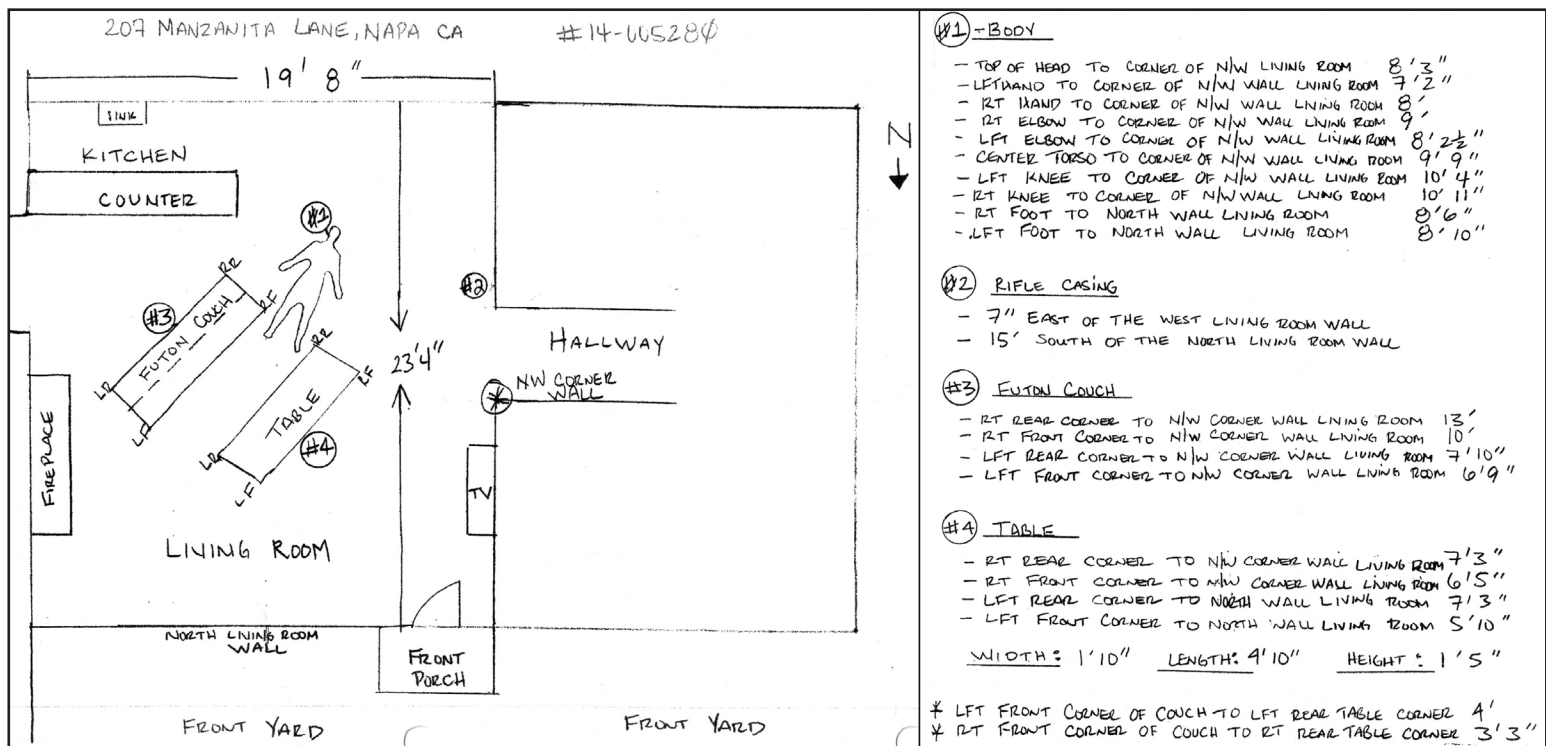 207 MANZANITA LANE, NAPA CA #14-005280
19' 8"
SINK
KITCHEN
COUNTER
#1
RR
#3
FUTON COUCH
RF
LR
LF
#2
N
HALLWAY
23'4"
RR
RF
TABLE
#4
LR
LF
NW CORNER
WALL
FIREPLACE
TV
LIVING ROOM
NORTH LIVING ROOM
WALL
FRONT
PORCH
FRONT YARD
FRONT YARD
#1 - BODY
- TOP OF HEAD TO CORNER OF N/W LIVING ROOM 8'3"
- LFT HAND TO CORNER OF N/W WALL LIVING ROOM 7'2"
- RT HAND TO CORNER OF N/W WALL LIVING ROOM 8'
- RT ELBOW TO CORNER OF N/W WALL LIVING ROOM 9'
- LFT ELBOW TO CORNER OF N/W WALL LIVING ROOM 8'2½"
- CENTER TORSO TO CORNER OF N/W WALL LIVING ROOM 9'9"
- LFT KNEE TO CORNER OF N/W WALL LIVING ROOM 10'4"
- RT KNEE TO CORNER OF N/W WALL LIVING ROOM 10'11"
- RT FOOT TO NORTH WALL LIVING ROOM 8'6"
- LFT FOOT TO NORTH WALL LIVING ROOM 8'10"
#2 RIFLE CASING
- 7" EAST OF THE WEST LIVING ROOM WALL
- 15' SOUTH OF THE NORTH LIVING ROOM WALL
#3 FUTON COUCH
- RT REAR CORNER TO N/W CORNER WALL LIVING ROOM 13'
- RT FRONT CORNER TO N/W CORNER WALL LIVING ROOM 10'
- LFT REAR CORNER TO N/W CORNER WALL LIVING ROOM 7'10"
- LFT FRONT CORNER TO N/W CORNER WALL LIVING ROOM 6'9"
#4 TABLE
- RT REAR CORNER TO N/W CORNER WALL LIVING ROOM 7'3"
- RT FRONT CORNER TO N/W CORNER WALL LIVING ROOM 6'5"
- LFT REAR CORNER TO NORTH WALL LIVING ROOM 7'3"
- LFT FRONT CORNER TO NORTH WALL LIVING ROOM 5'10"
WIDTH: 1'10" LENGTH: 4'10" HEIGHT: 1'5"
* LFT FRONT CORNER OF COUCH TO LFT REAR TABLE CORNER 4'
* RT FRONT CORNER OF COUCH TO RT REAR TABLE CORNER 3'3"